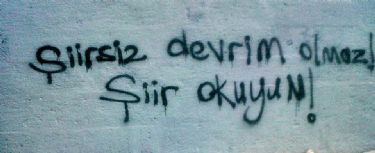 Şiirsiz devrim olmaz!
Şiir okuyun!